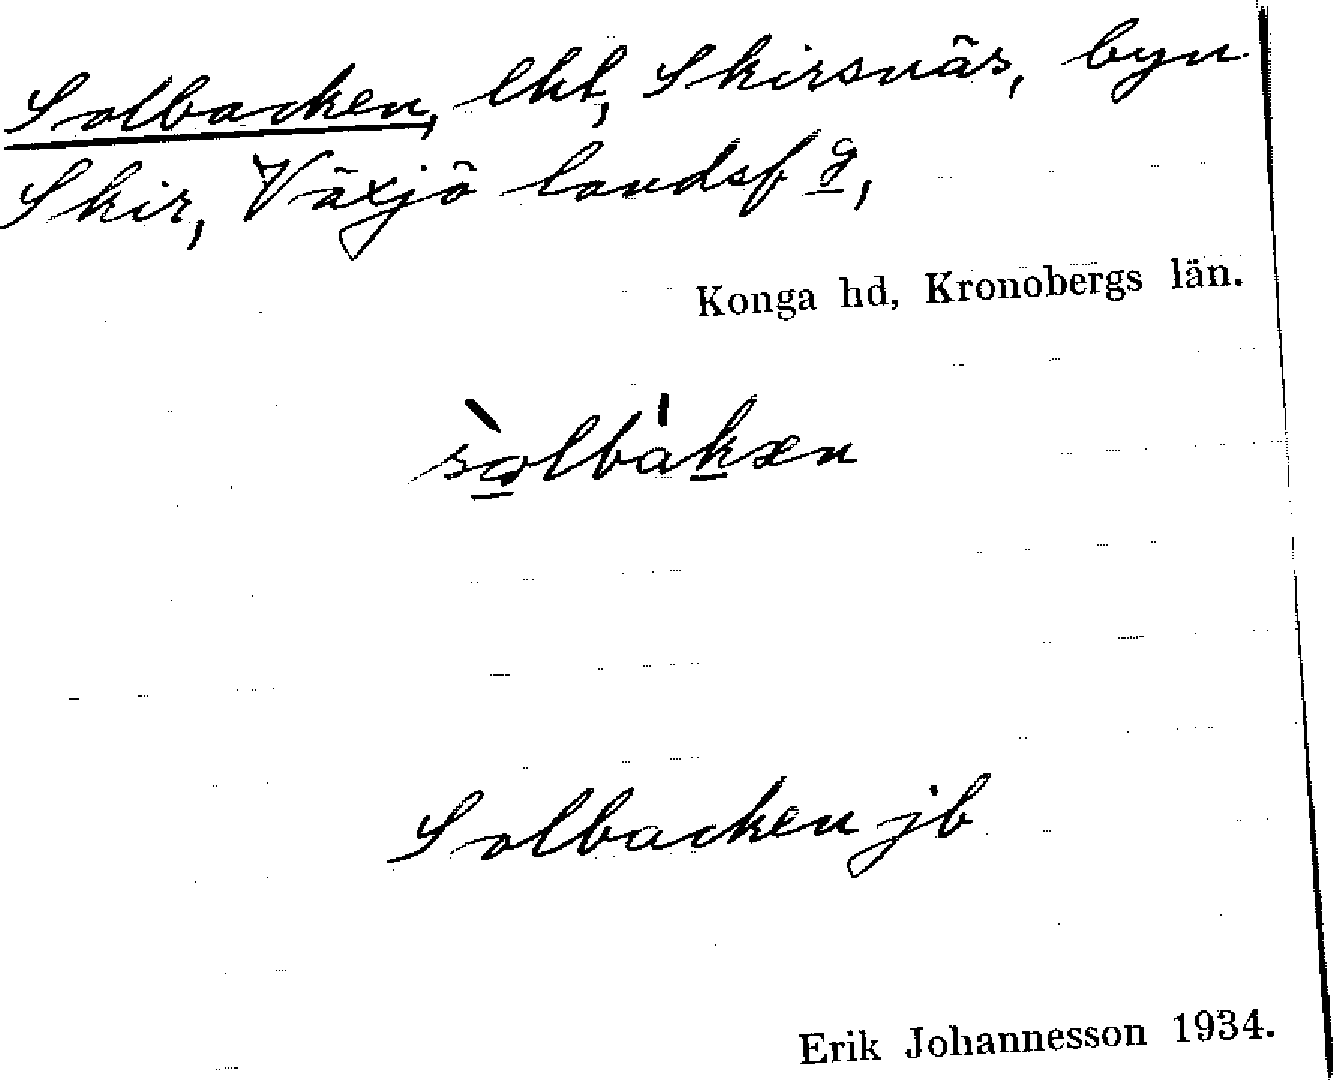 Solbacken, lht, Skirsnäs, byn
Skir, Växjö landsfg,
Konga hd, Kronobergs län.
sòlbákæn
Solbacken jb
Erik Johannesson 1934.